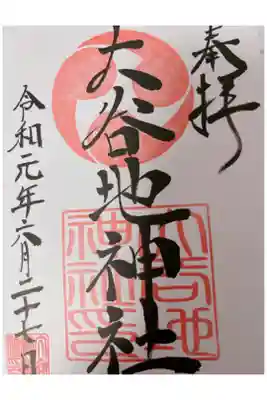 奉拝
大谷地神社
大谷地
神社印
令和元年六月二十七日